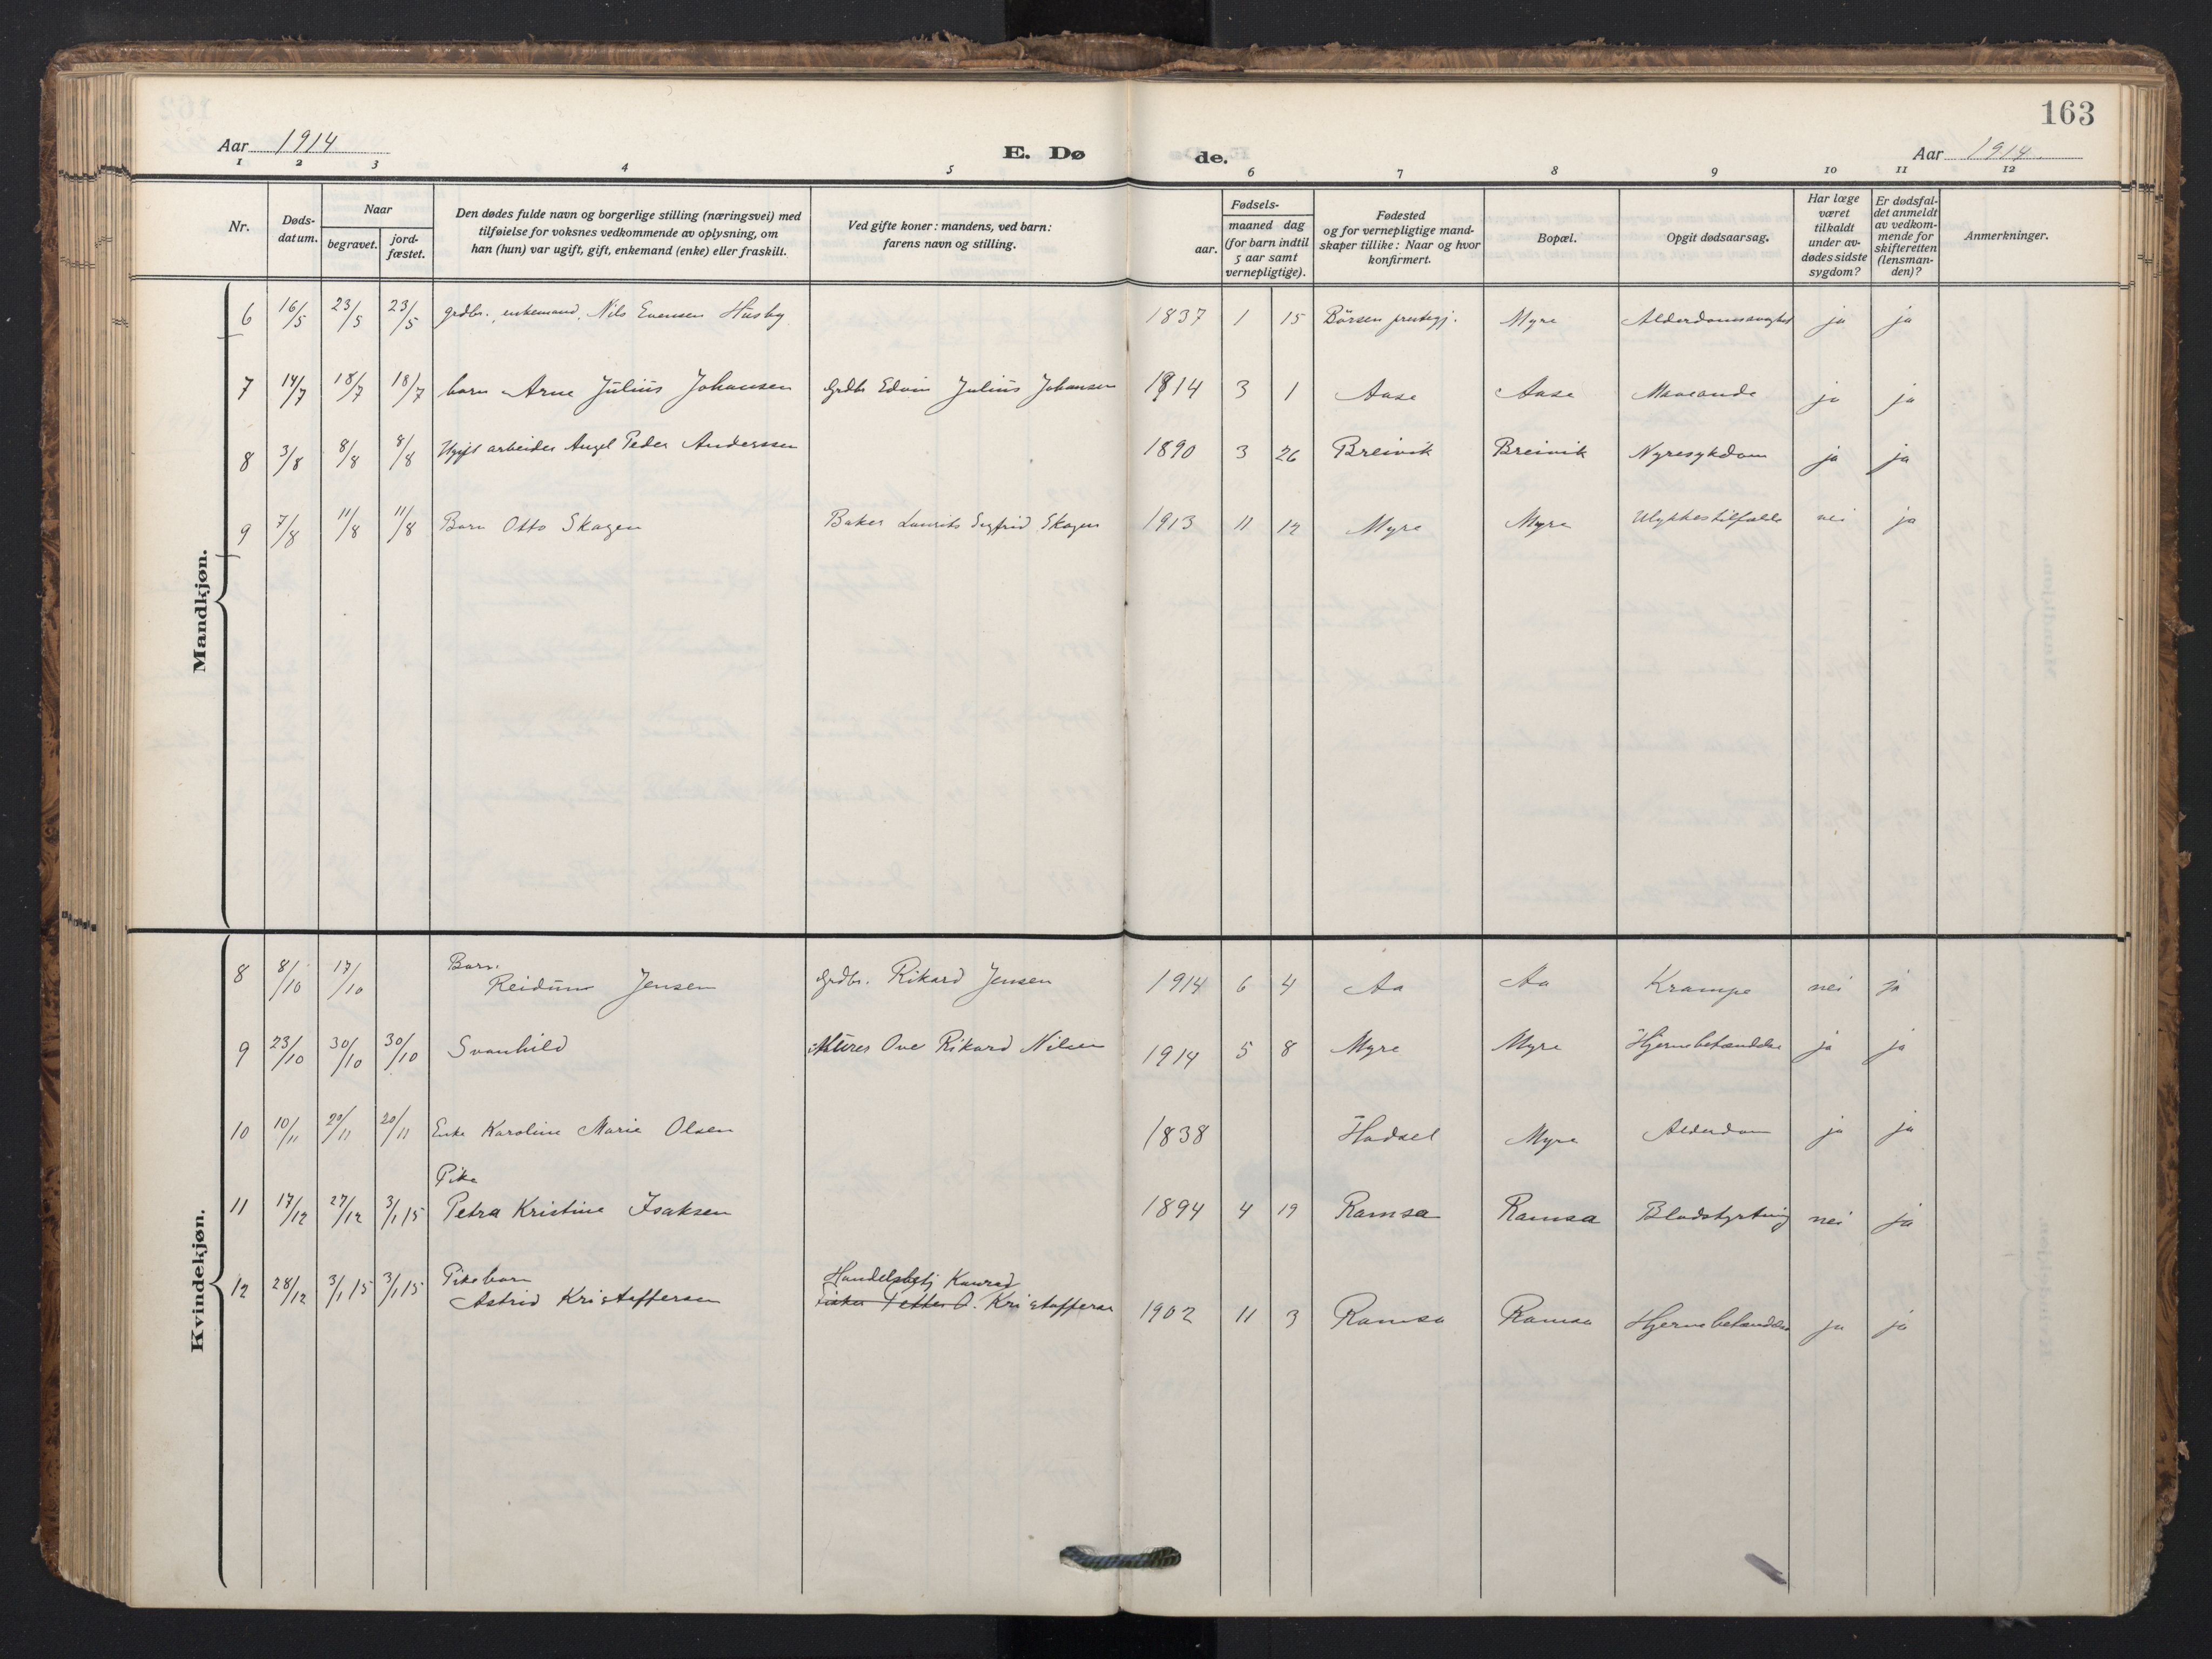 163
Aar 1914
E. Døde.
Aar 1914.
1 2 3 4 5 6 7 8 9 10 11 12
Nr.
Døds-datum.
Naar
begravet.
jord-fæstet.
Den dødes fulde navn og borgerlige stilling (næringsvei) med
tilføielse for voksnes vedkommende av oplysning, om
han (hun) var ugift, gift, enkemand (enke) eller fraskilt.
Ved gifte koner: mandens, ved barn:
farens navn og stilling.
Fødsels-
aar.
maaned dag
(for barn indtil
5 aar samt
vernepligtige).
Fødested
og for vernepligtige mand-
skaper tillike: Naar og hvor
konfirmert.
Bopæl.
Opgit dødsaarsag.
Har læge
været
tilkaldt
under av-
dødes sidste
sygdom?
Er dødsfal-
det anmeldt
av vedkom-
mende for
skifteretten
(lensman-
den)?
Anmerkninger.
Mandkjøn.
6 16/5 23/5 23/5 grdbr., enkemand, Nils Evensen Husby 1837 1 15 Börsen prestegj. Myre ja ja
7 14/7 18/7 18/7 barn Arne Julius Johansen Grdbr Edvin Julius Johansen 1914 3 1 Aase Aase ja ja
8 3/8 8/8 8/8 Ugift arbeider Angel Peder Anderssen 1890 3 26 Breivik Breivik Nyresykdom ja ja
9 7/8 11/8 11/8 Barn Otto Skagen Baker Laurits Sigfrid Skagen 1913 11 12 Myre Myre Ulykkestilfælde nei ja
Kvindekjøn.
8 8/10 17/10 Barn.
Reidun Jensen Grdbr. Rikard Jensen 1914 6 4 Aa Aa Krampe nei ja
9 23/10 30/10 30/10 Svanhild Ove Rikard Nilsen 1914 5 8 Myre Myre Hjernebetændelse ja ja
10 10/11 20/11 20/11 Enke Karoline Marie Olsen 1838 Hadsel Myre Alderdom ja ja
11 17/12 27/12 3/1 15 Pike
Petra Kristine Isaksen 1894 4 19 Ramsa Ramsa Blodstyrtning nei ja
12 28/12 3/1 15 3/1 15 Pikebarn
Astrid Kristoffersen Handelsbetj Konrad
Fisker Petter O. Kristoffersen 1902 11 3 Ramsa Ramsa Hjernebetændelse ja ja